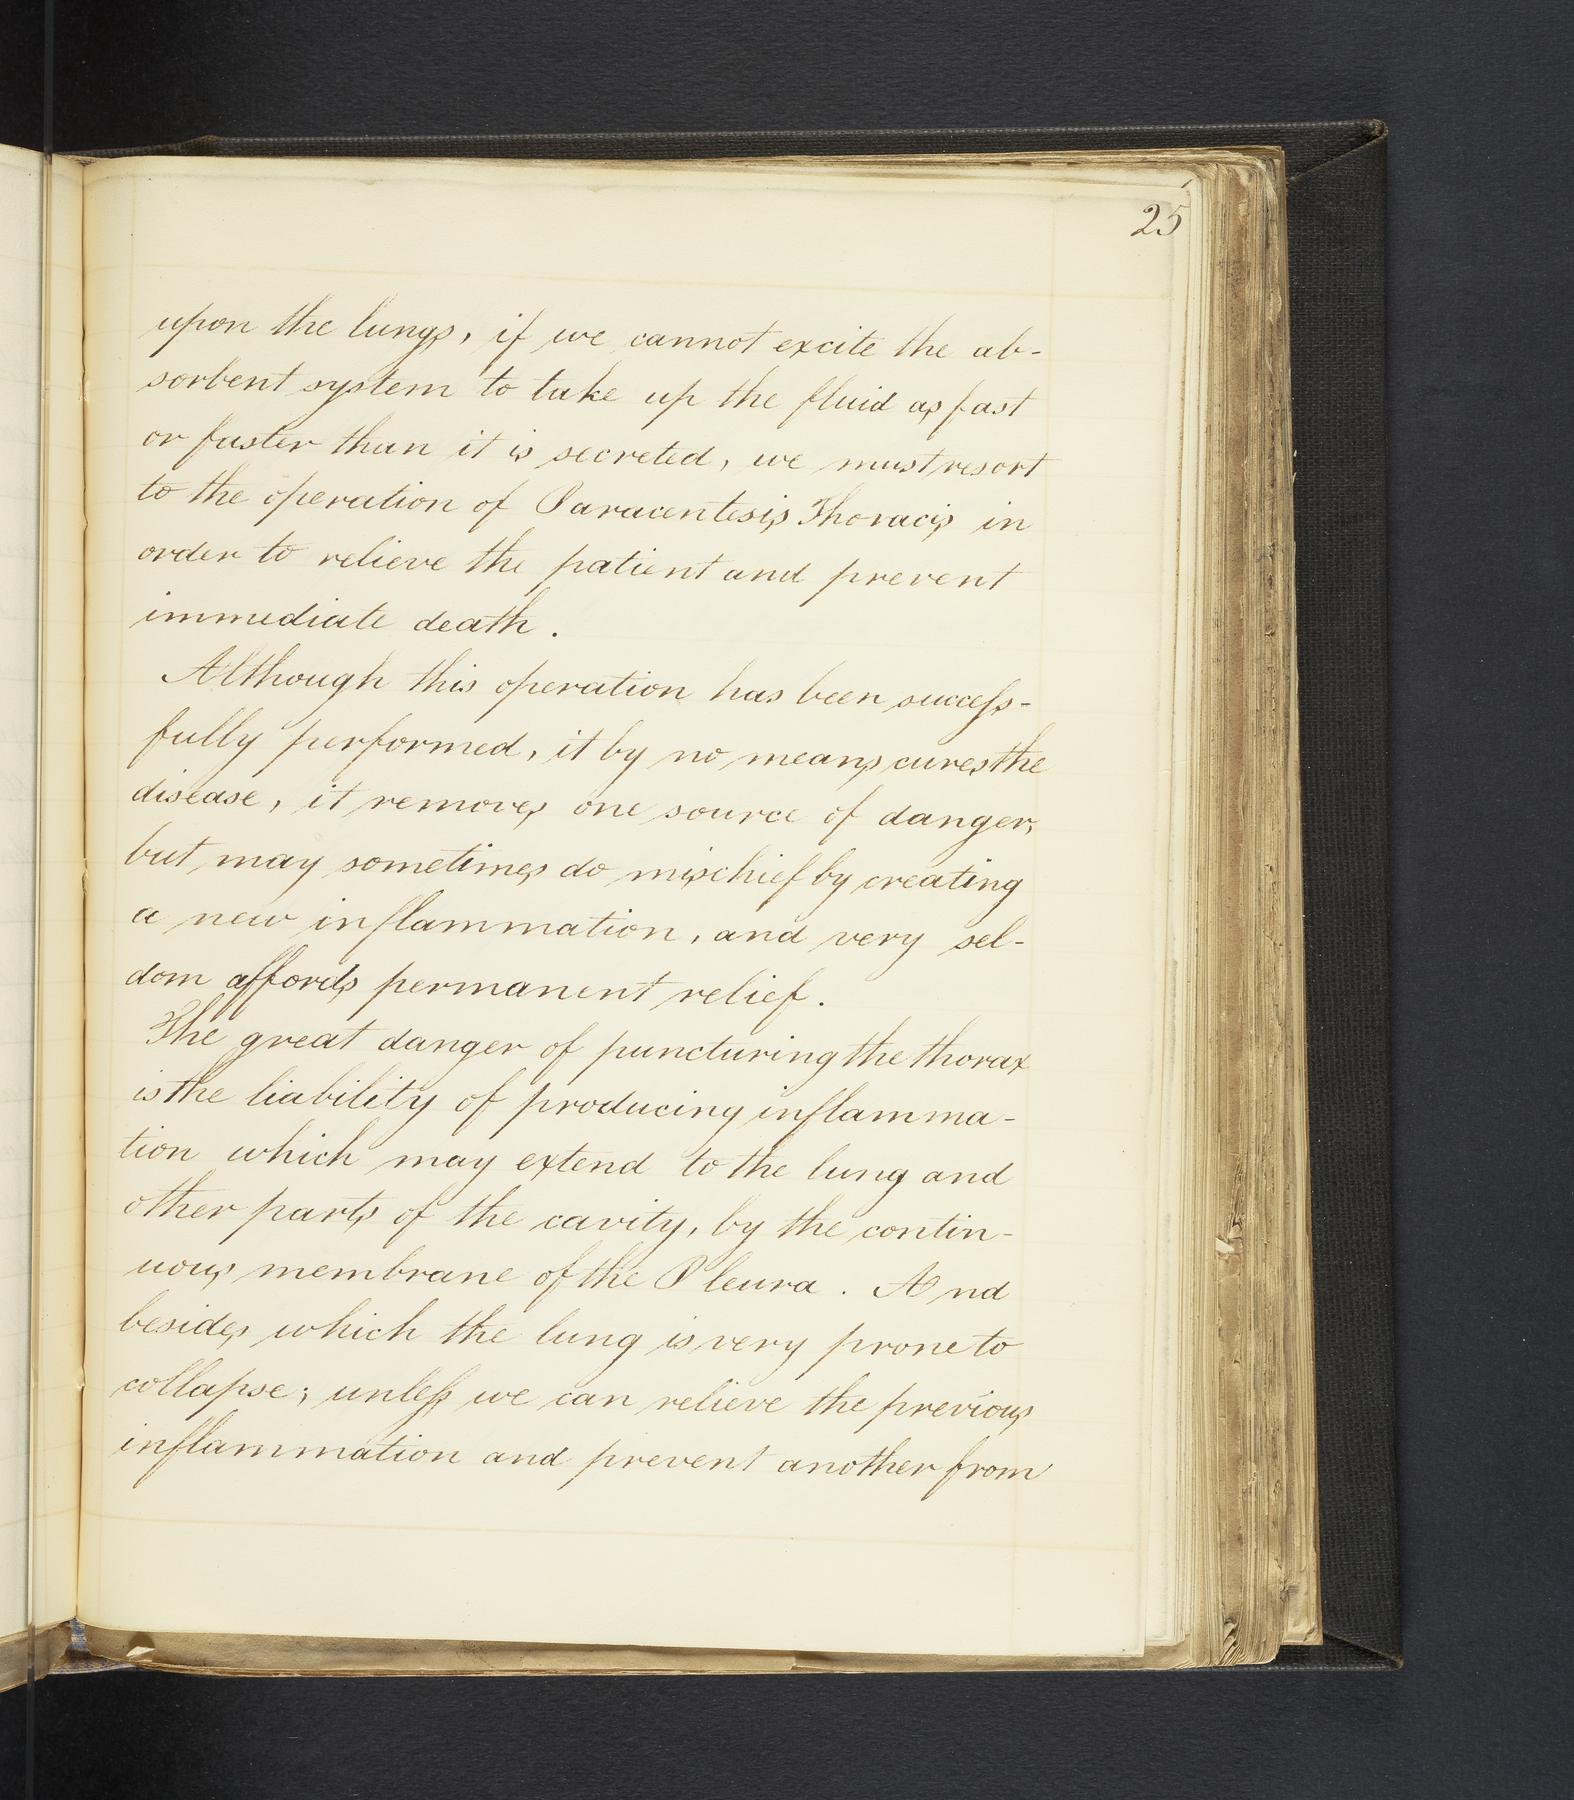 25
upon the lungs, if we cannot excite the ab-
sorbent system to take up the fluid as fast
or faster than it is secreted, we must resort
to the operation of Paracentesis Thoracis in
order to relieve the patient and prevent
immediate death.
Although this operation has been success-
fully performed, it by no means cures the
disease, it removes one source of danger,
but may sometimes do mischief by creating
a new inflammation, and very sel-
dom affords permanent relief.
The great danger of puncturing the thorax
is the liability of producing inflamma-
tion which may extend to the lung and
other parts of the cavity, by the contin-
uous membrane of the Pleura. And
besides which the lung is very prone to
collapse; unless we can relieve the previous
inflammation and prevent another from